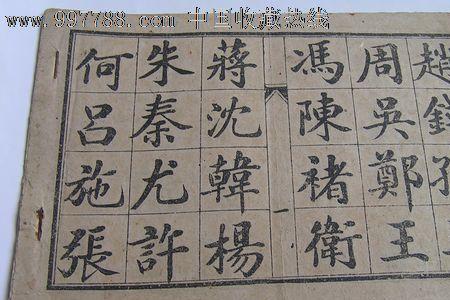 www.997788.com 中国收藏热线
趙錢孫
周吳鄭王
馮陳褚衛
一
蔣沈韓楊
朱秦尤許
何呂施張